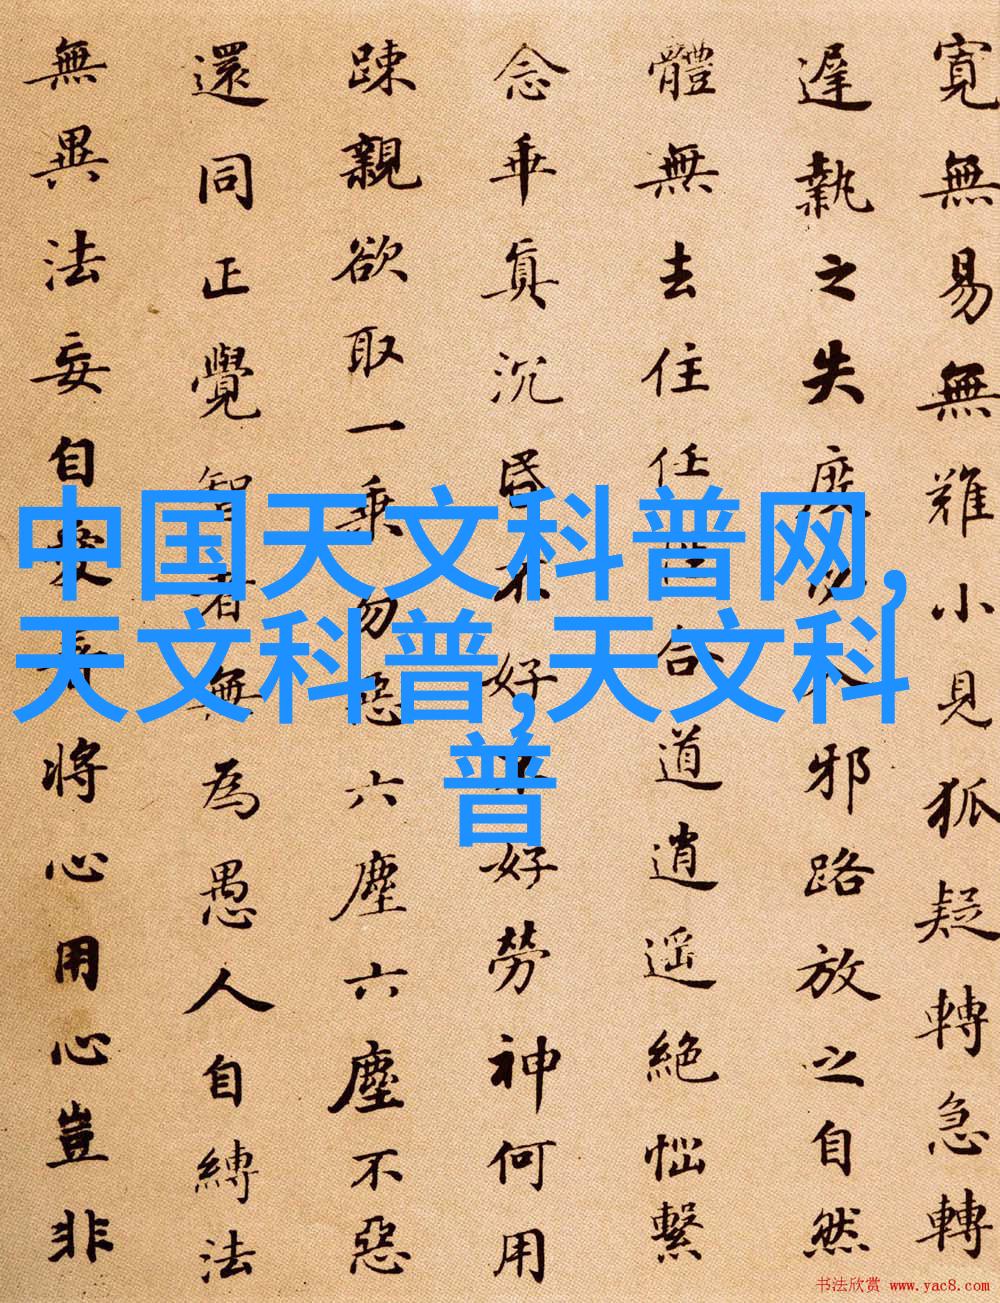 寛無易無難小見狐疑轉急轉
遲執之失度邪路放之自然
體無去住任合道逍遥絶惱繫
念乖真沉昏不好不好勞神何用
踈親欲取一乗勿惡六塵六塵不惡
還同正覺智者無為愚人自縛法
無異法妄自愛將心用心豈非
中国天文科普网,
天文科普,天文科
普
书法欣赏 www.yac8.com